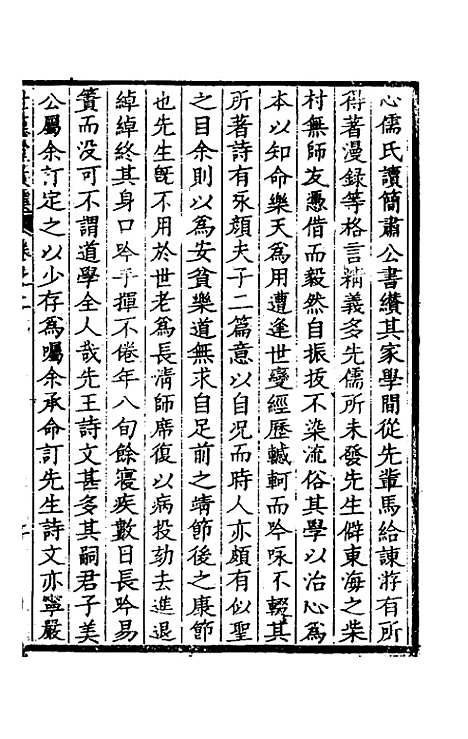 心儒氏讀簡肅公書纘其家學間從先輩馬給諫游有所
得著漫録等格言精義多先儒所未發先生僻東海之柴
村無師友憑借而毅然自振拔不染流俗其學以治心為
本以知命樂天為用遭逢世變經歷轗軻而吟咏不輟其
所著詩有咏顏夫子二篇意以自况而時人亦頗有似聖
之目余則以為安貧樂道無求自足前之靖節後之康節
也先生旣不用於世老為長清師席復以病投劾去進退
綽綽終其身口吟手揮不倦年八旬餘寢疾數日長吟易
簀而没可不謂道學全人哉先王詩文甚多其嗣君子美
公屬余訂定之以少存為囑余承命訂先生詩文亦寧嚴
卷之二